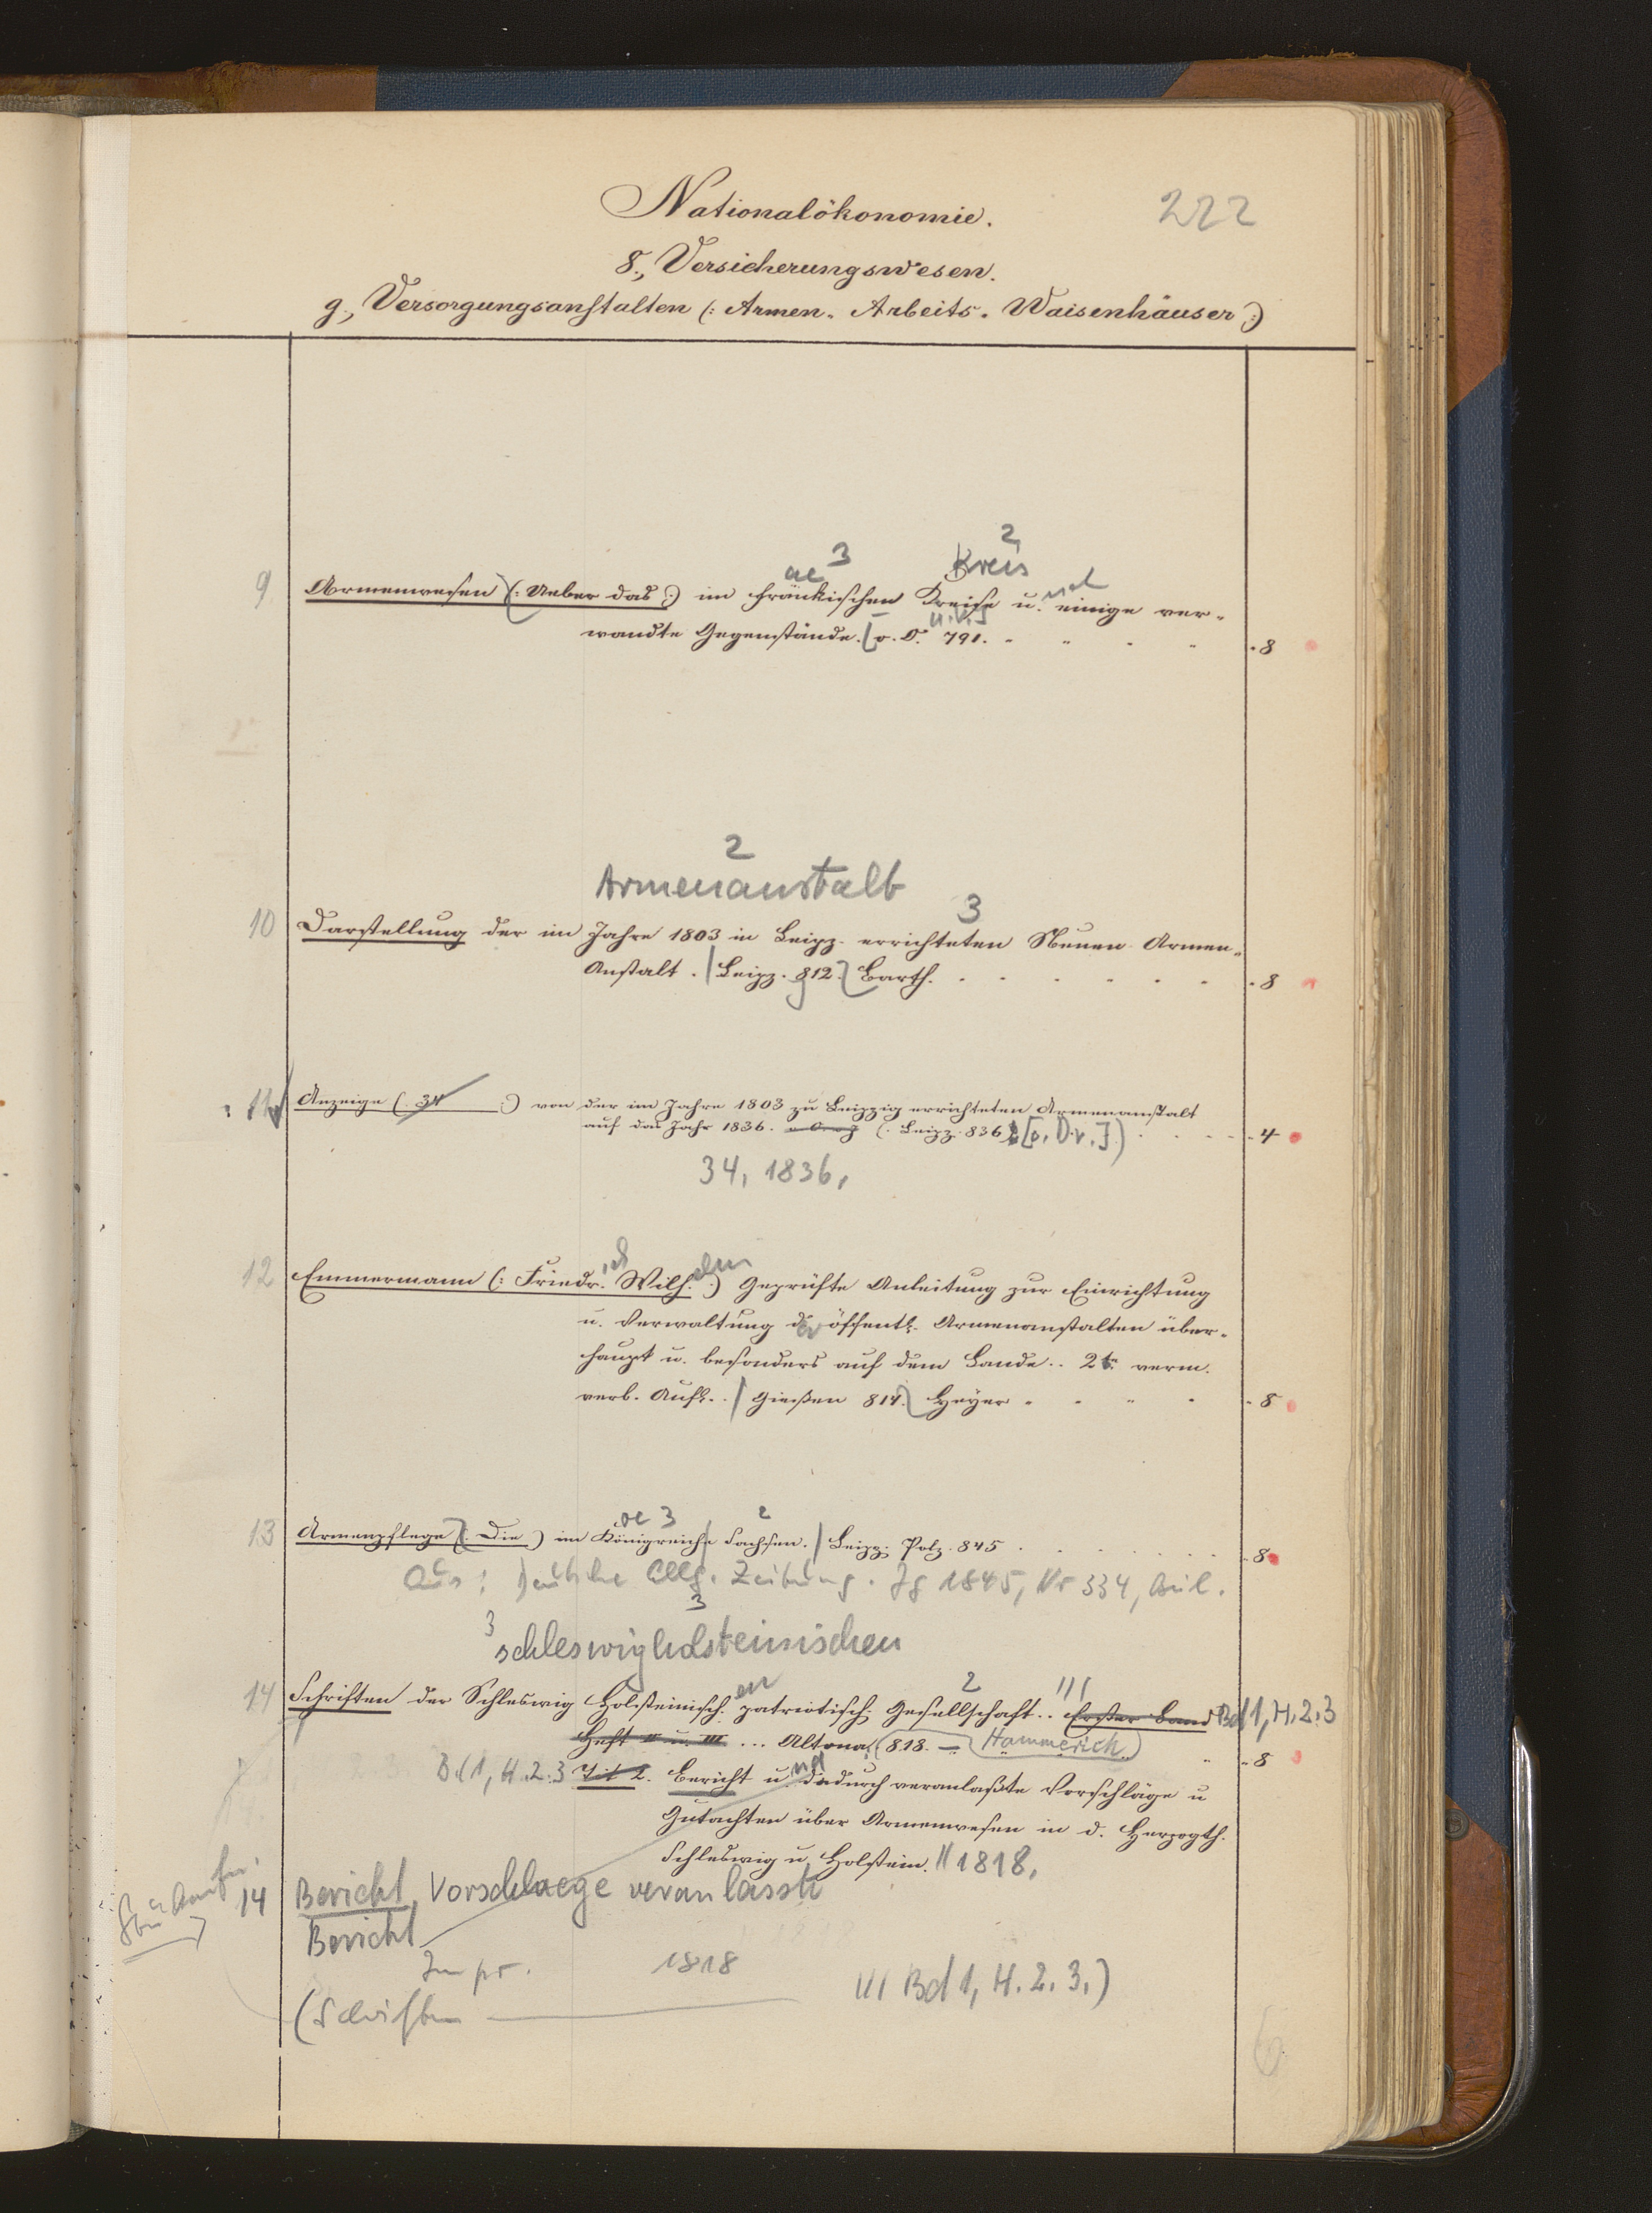 Nationalökonomie.
222
8., Versicherungswesen.
g., Versorgungsanstalten (: Armen- Arbeits- Waisenhäuser :)
ae 3 Kreis 2
9 Armenwesen (: Ueber das :) im fränkischen Kreise u. einige ver-
wandte Gegenstände. [o. O. 791. 8
2
Armenanstalt
3
10 Darstellung der im Jahre 1803 in Leipz. errichteten Neuen Armen-
Anstalt. / Leipz. 812. Barth. 8
11 Anzeige (: 34 :) von der im Jahre 1803 zu Leipzig errichteten Armenanstalt
auf das Jahr 1836. (: Leipz. 836 [o. Dr.]) 4
34, 1836,
12 Emmermann (: Friedr. Wilh. :) Geprüfte Anleitung zur Einrichtung
u. Verwaltung der öffentl. Armenanstalten über-
haupt u. besonders auf dem Lande.. 2t. verm.
verb. Aufl.. / Gießen 814. Heyer 8
oe 3 2
13 Armenpflege (: Die :) im Königreiche Sachsen. / Leipz. Polz. 845 8
Aus: Deutsche Allg. Zeitung. Jg 1845, Nr 334, Beil.
3 3
schleswigholsteinischen
en 2 ///
14 Schriften der Schleswig Holsteinisch. patriotisch. Gesellschaft.. Erster Band Bd 1, H. 2. 3
Heft II u. III ... Altona (818. - Hammerich) 8
Bd 1, H. 2. 3 Bericht u. dadurch veranlaßte Vorschläge u
Gutachten über Armenwesen in d. Herzogth.
Schleswig u. Holstein. // 1818.
14 Bericht, Vorschlaege veranlasste
Bericht
Impr. 1818
(Schriften /// Bd 1, H. 2. 3.)
6